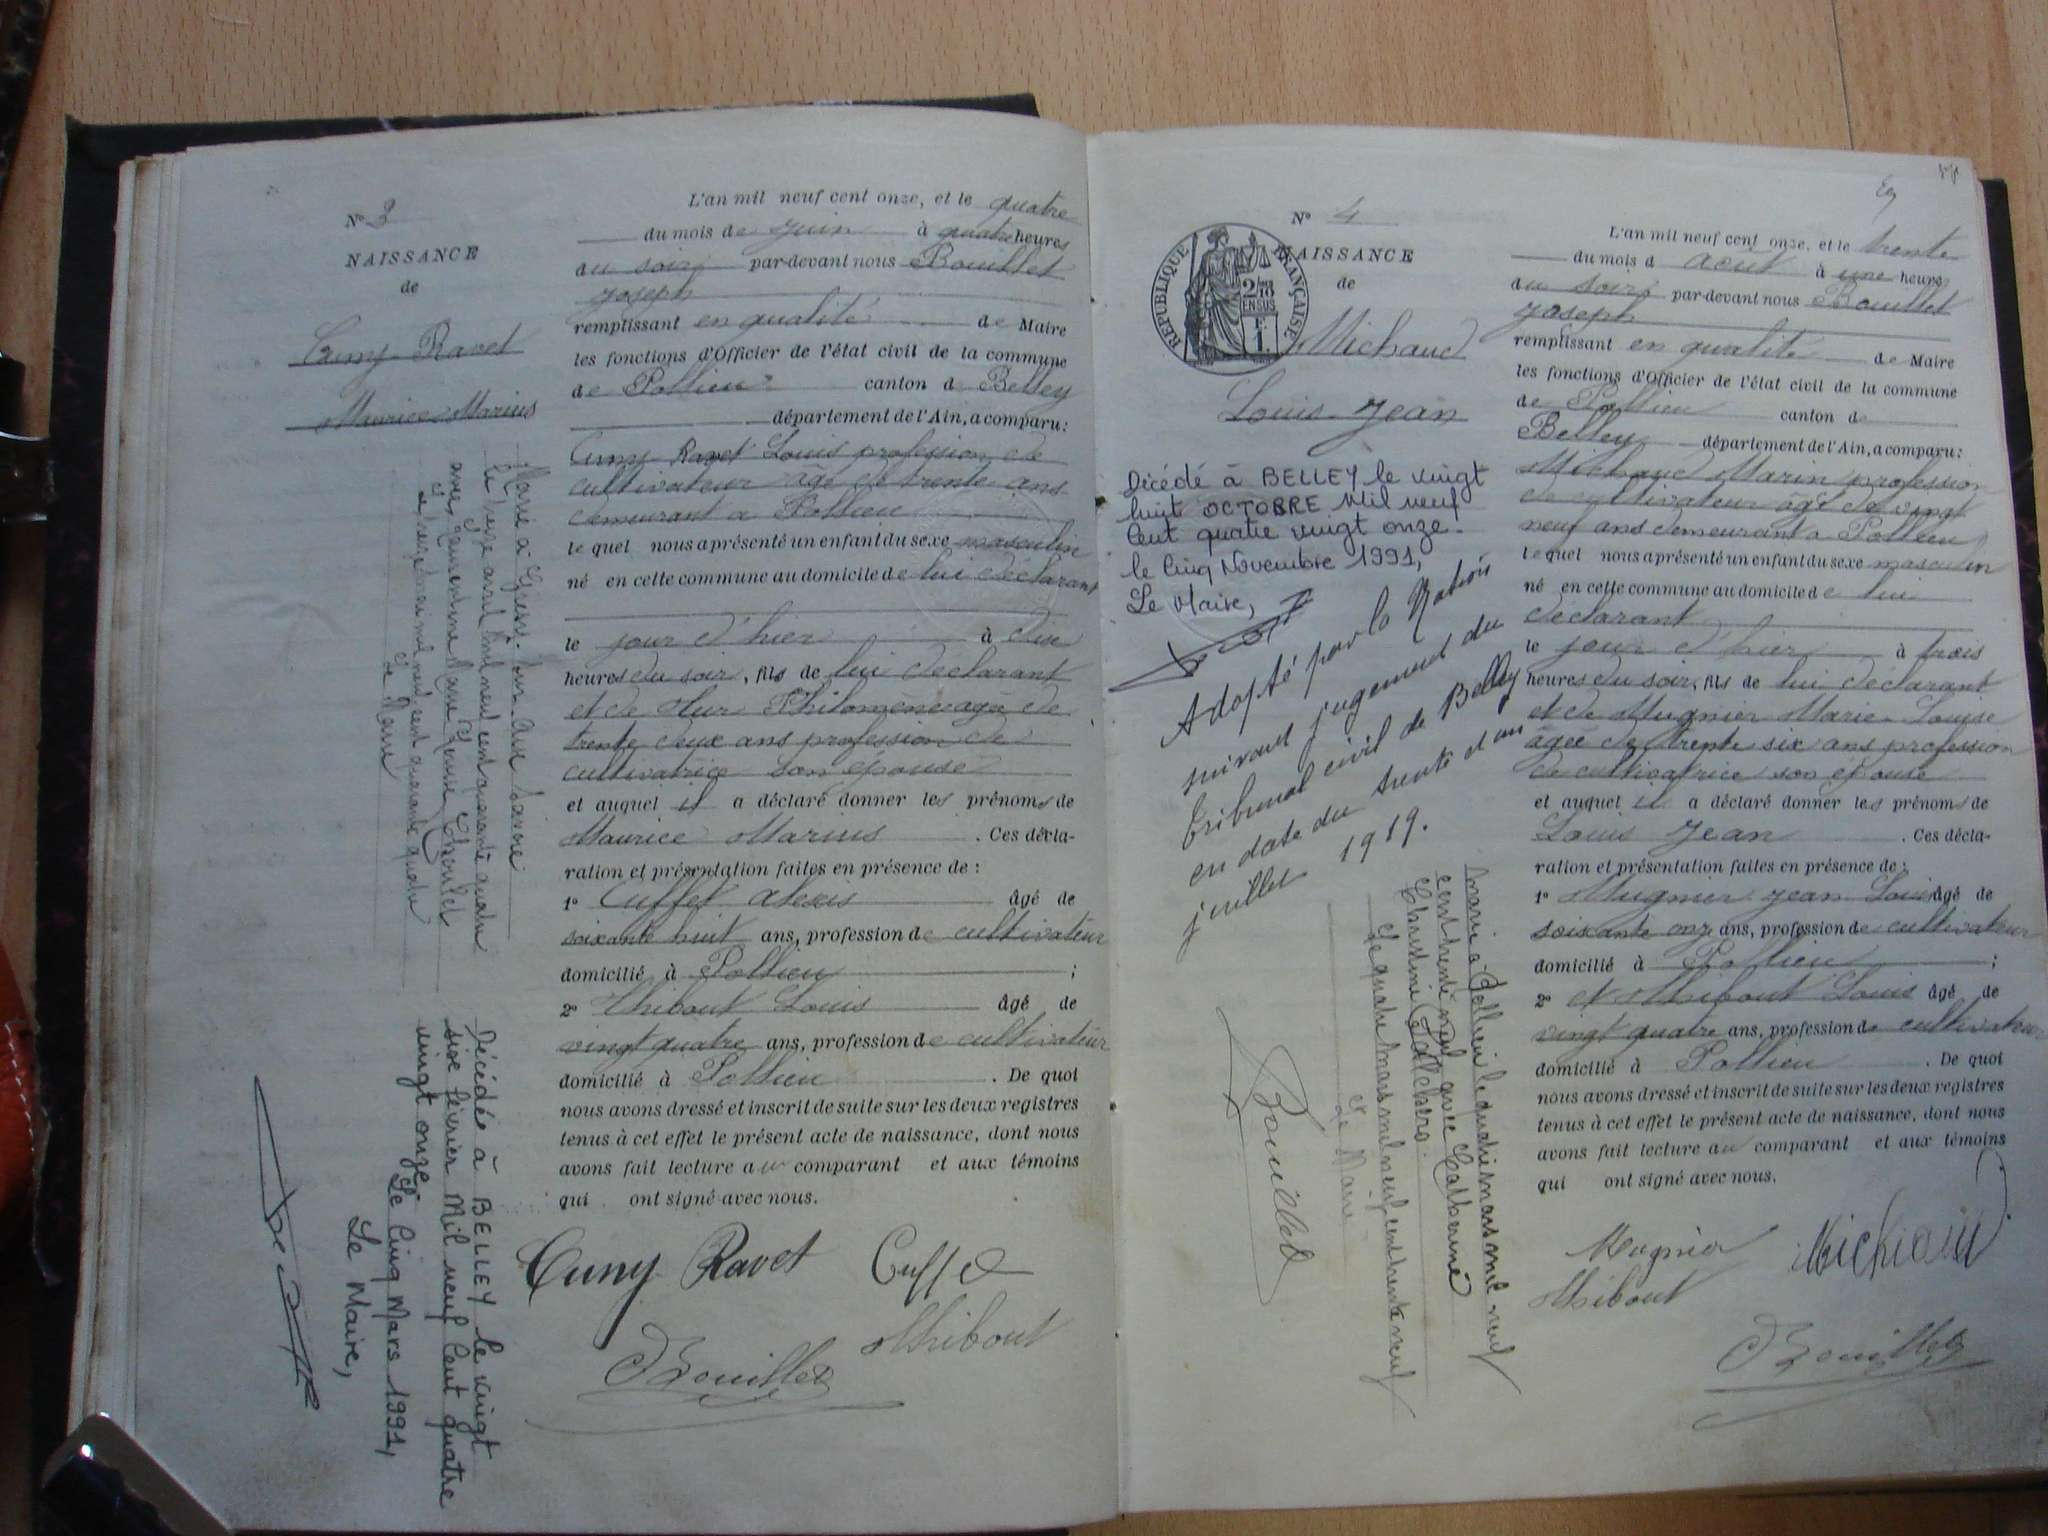 N° 3
NAISSANCE
de
Cuny-Ravet
Maurice-Marius
L'an mil neuf cent onze, et le quatre
du mois de juin à quatre heures
du soir par-devant nous Bouillet
Joseph
remplissant en qualité de Maire
les fonctions d'Officier de l'état civil de la commune
de Pollieu canton de Belley
département de l'Ain, a comparu:
Cuny-Ravet Louis profession de
cultivateur âgé de trente ans
demeurant à Pollieu
lequel nous a présenté un enfant du sexe masculin
né en cette commune au domicile de lui déclarant
le jour d'hier à dix
heures du soir, fils de lui déclarant
et de Mur Philomène âgée de
trente deux ans profession de
cultivatrice son épouse
et auquel il a déclaré donner les prénoms de
Maurice Marius. Ces décla-
ration et présentation faites en présence de:
1° Cuffet Alexis âgé de
soixante huit ans, profession de cultivateur
domicilié à Pollieu;
2° Thibout Louis âgé de
vingt quatre ans, profession de cultivateur
domicilié à Pollieu. De quoi
nous avons dressé et inscrit de suite sur les deux registres
tenus à cet effet le présent acte de naissance, dont nous
avons fait lecture au comparant et aux témoins
qui ont signé avec nous.
Cuny-Ravet Cuffet
Thibout
Bouillet
Marié à Grésy-sur-Aix Savoie
le treize avril mil neuf cent quarante quatre
avec Laurentine Marie Louise
Le seize mil neuf cent quarante quatre
Le Maire
Décédé à BELLEY le vingt
six février Mil neuf Cent quatre
vingt onze.
Le Cinq Mars 1991,
Le Maire,
N° 4
NAISSANCE
de
RÉPUBLIQUE FRANÇAISE
2/10 EN SUS
F. 1.
Michaud
Louis-Jean
Décédé à BELLEY le vingt
huit OCTOBRE Mil neuf
Cent quatre vingt onze.
le Cinq Novembre 1991,
Le Maire,
Adopté par la Nation
suivant jugement du
tribunal civil de Belley
en date du trente et un
juillet 1919.
Bouillet
Marié à Pollieu le quatre mars mil neuf
cent trente neuf avec Catherine
Christine
Le quatre mars mil neuf cent trente neuf
Le Maire
L'an mil neuf cent onze, et le trente
du mois d août à une heure
du soir par-devant nous Bouillet
Joseph
remplissant en qualité de Maire
les fonctions d'Officier de l'état civil de la commune
de Pollieu canton de
Belley département de l'Ain, a comparu:
Michaud Marin profession
de cultivateur âgé de vingt
neuf ans demeurant à Pollieu
lequel nous a présenté un enfant du sexe masculin
né en cette commune au domicile de lui
déclarant
le jour d'hier à trois
heures du soir, fils de lui déclarant
et de Mugnier Marie-Louise
âgée de trente six ans profession
de cultivatrice son épouse
et auquel il a déclaré donner les prénoms de
Louis Jean. Ces décla-
ration et présentation faites en présence de:
1° Mugnier Jean-Louis âgé de
soixante onze ans, profession de cultivateur
domicilié à Pollieu;
2° et Thibout Louis âgé de
vingt quatre ans, profession de cultivateur
domicilié à Pollieu. De quoi
nous avons dressé et inscrit de suite sur les deux registres
tenus à cet effet le présent acte de naissance, dont nous
avons fait lecture au comparant et aux témoins
qui ont signé avec nous.
Mugnier Michaud
Thibout
Bouillet